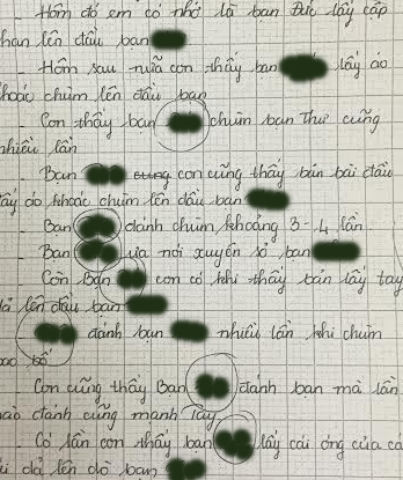 - Hôm đó em có nhớ là bạn Đức lấy cặp
lên đầu bạn
- Hôm sau nữa con thấy bạn lấy áo
khoác chùm lên đầu bạn
- Con thấy bạn chùm bạn Thư cũng
nhiều lần
- Bạn cũng con cũng thấy bán bài đầu
lấy áo khoác chùm lên đầu bạn
- Bạn đánh chùm khoảng 3-4 lần
- Bạn nói xuyên sỏ bạn
- Còn Bạn con có khi thấy bán lấy tay
lên đầu bạn
đánh bạn nhiều lần khi chùm
bao bố
Con cũng thấy Bạn đánh bạn mà lần
nào đánh cũng mạnh tay
- Có lần con thấy bạn lấy cái ống của
lên đò bạn